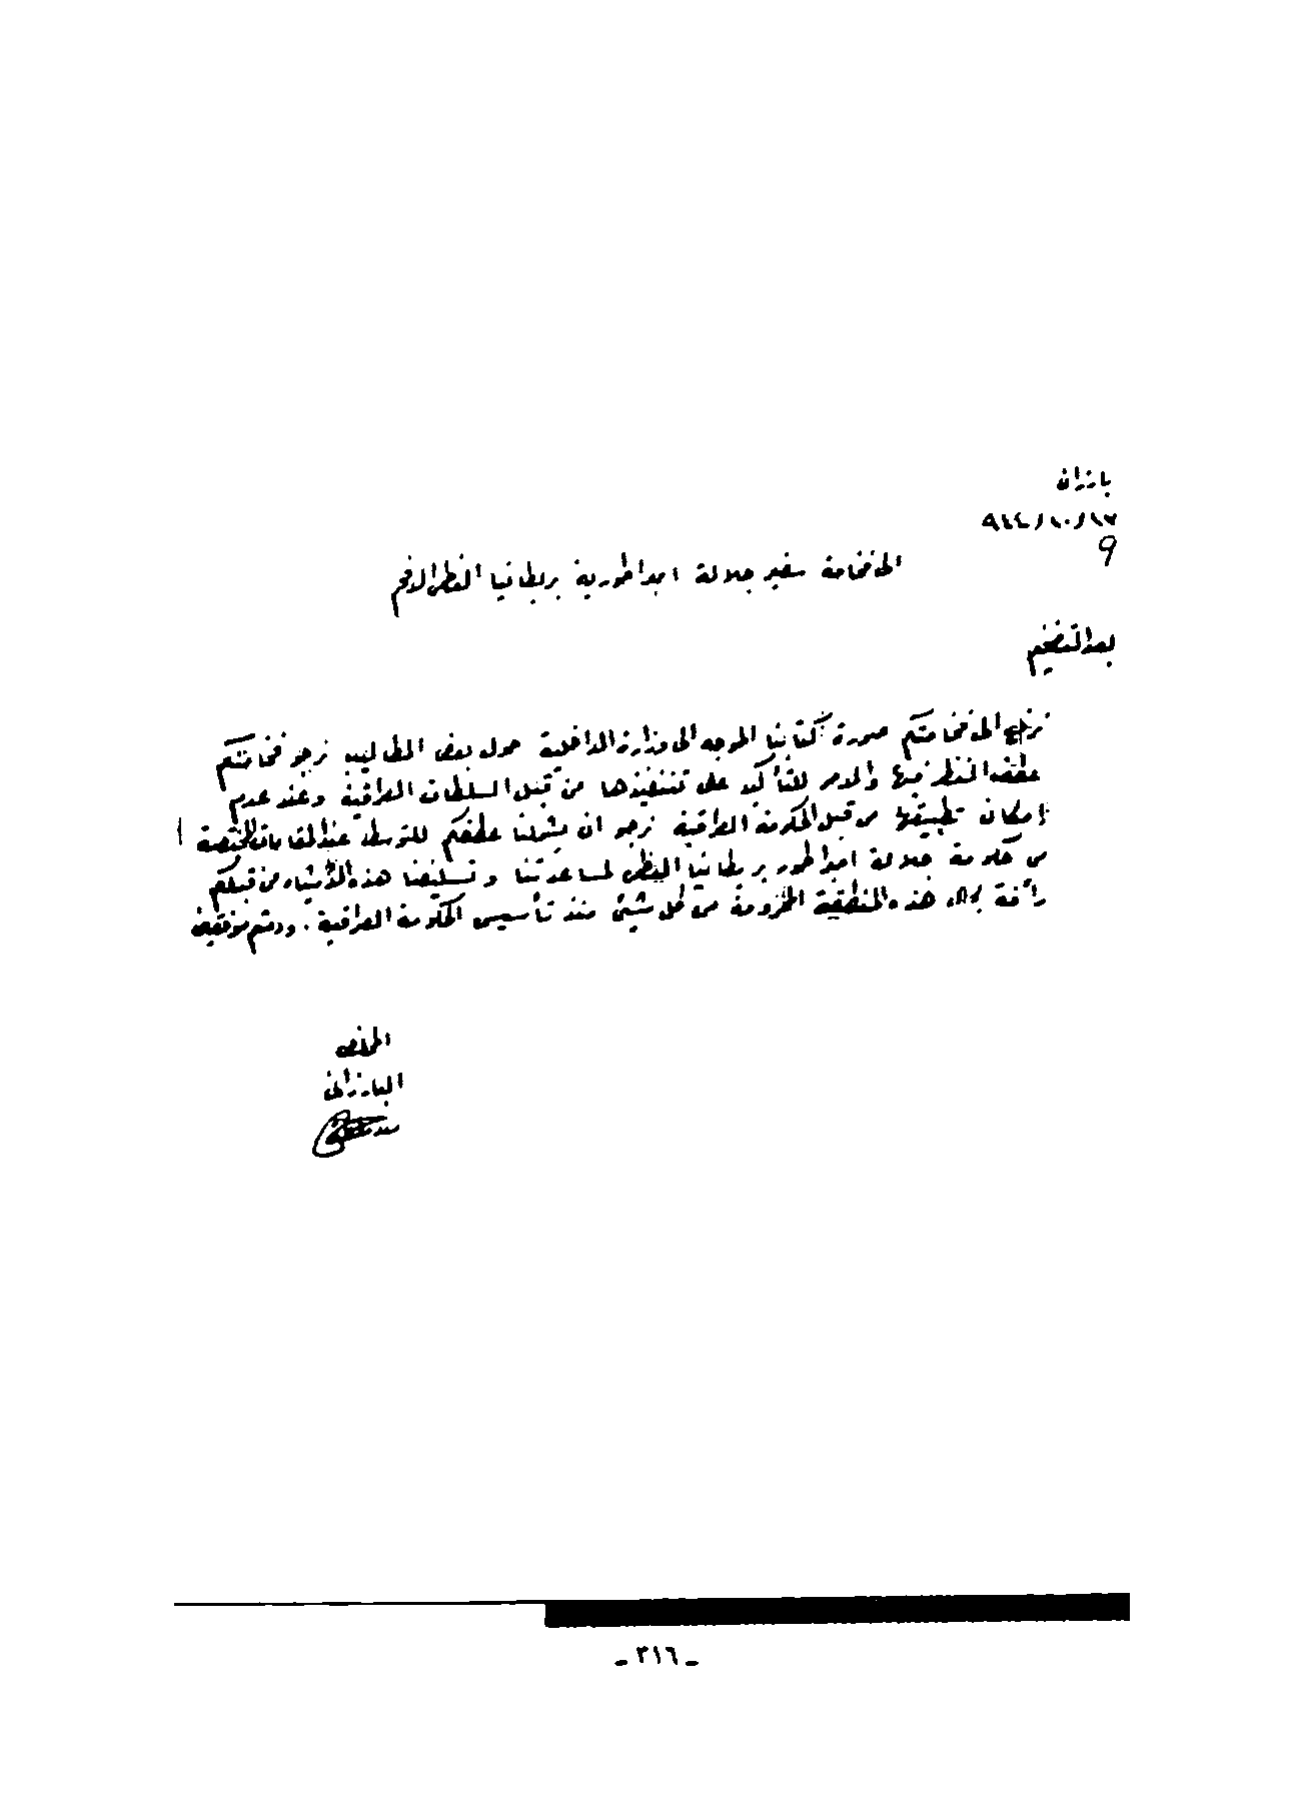 بارزان
٩٤٤/١٠/١٧
9
الى فخامة سفير جلالة امبراطورية بريطانيا العظمى الافخم
بعد التفخيم
نرفع الى فخامتكم صورة كتابنا الموجه الى وزارة الداخلية حول بعض المطاليب نرجو فخامتكم
عطف النظر فيها والامر للتأكيد على تنفيذها من قبل السلطات العراقية وعند عدم
إمكان تطبيقها من قبل الحكومة العراقية نرجو ان يشملنا عطفكم للتوسط عند المقامات المختصة
من حكومة جلالة امبراطور بريطانيا العظمى لمساعدتنا وتسليفنا هذه الأشياء من قبلكم
رأفة بحال هذه المنطقة المحرومة من كل شيئ منذ تأسيس الحكومة العراقية . ودمتم موفقين
المخلص
البارزاني
- ٣١٦ -